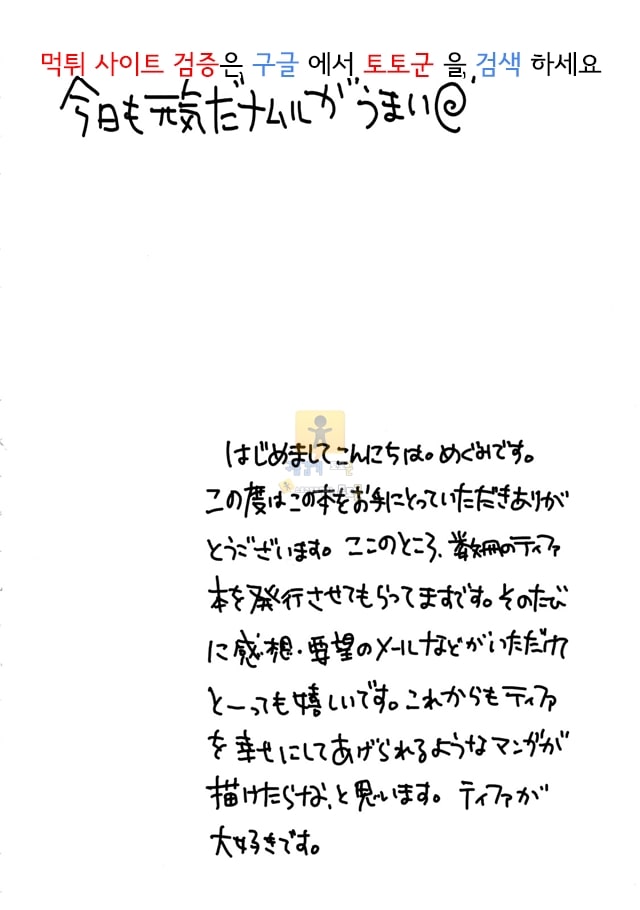 먹튀 사이트 검증은 구글 에서 토토군 을 검색 하세요
今日も元気だナムルがうまい@
はじめましてこんにちは。めぐみです。
この度はこの本をお手にとっていただきありが
とうございます。ここのところ、数冊のティファ
本を発行させてもらってますです。そのたび
に感想・要望のメールなどがいただけて
とーっても嬉しいです。これからもティファ
を幸せにしてあげられるようなマンガが
描けたらな、と思います。ティファが
大好きです。